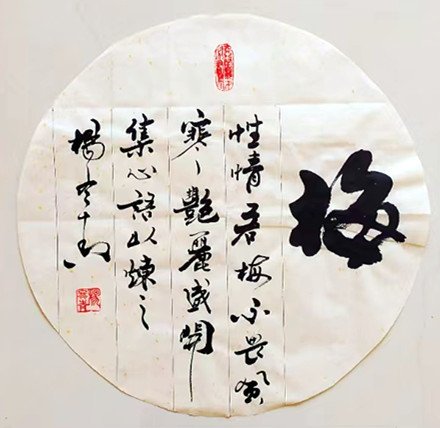 梅
性情若梅不畏風
寒、艷麗盛開
集心語以煉之
楊